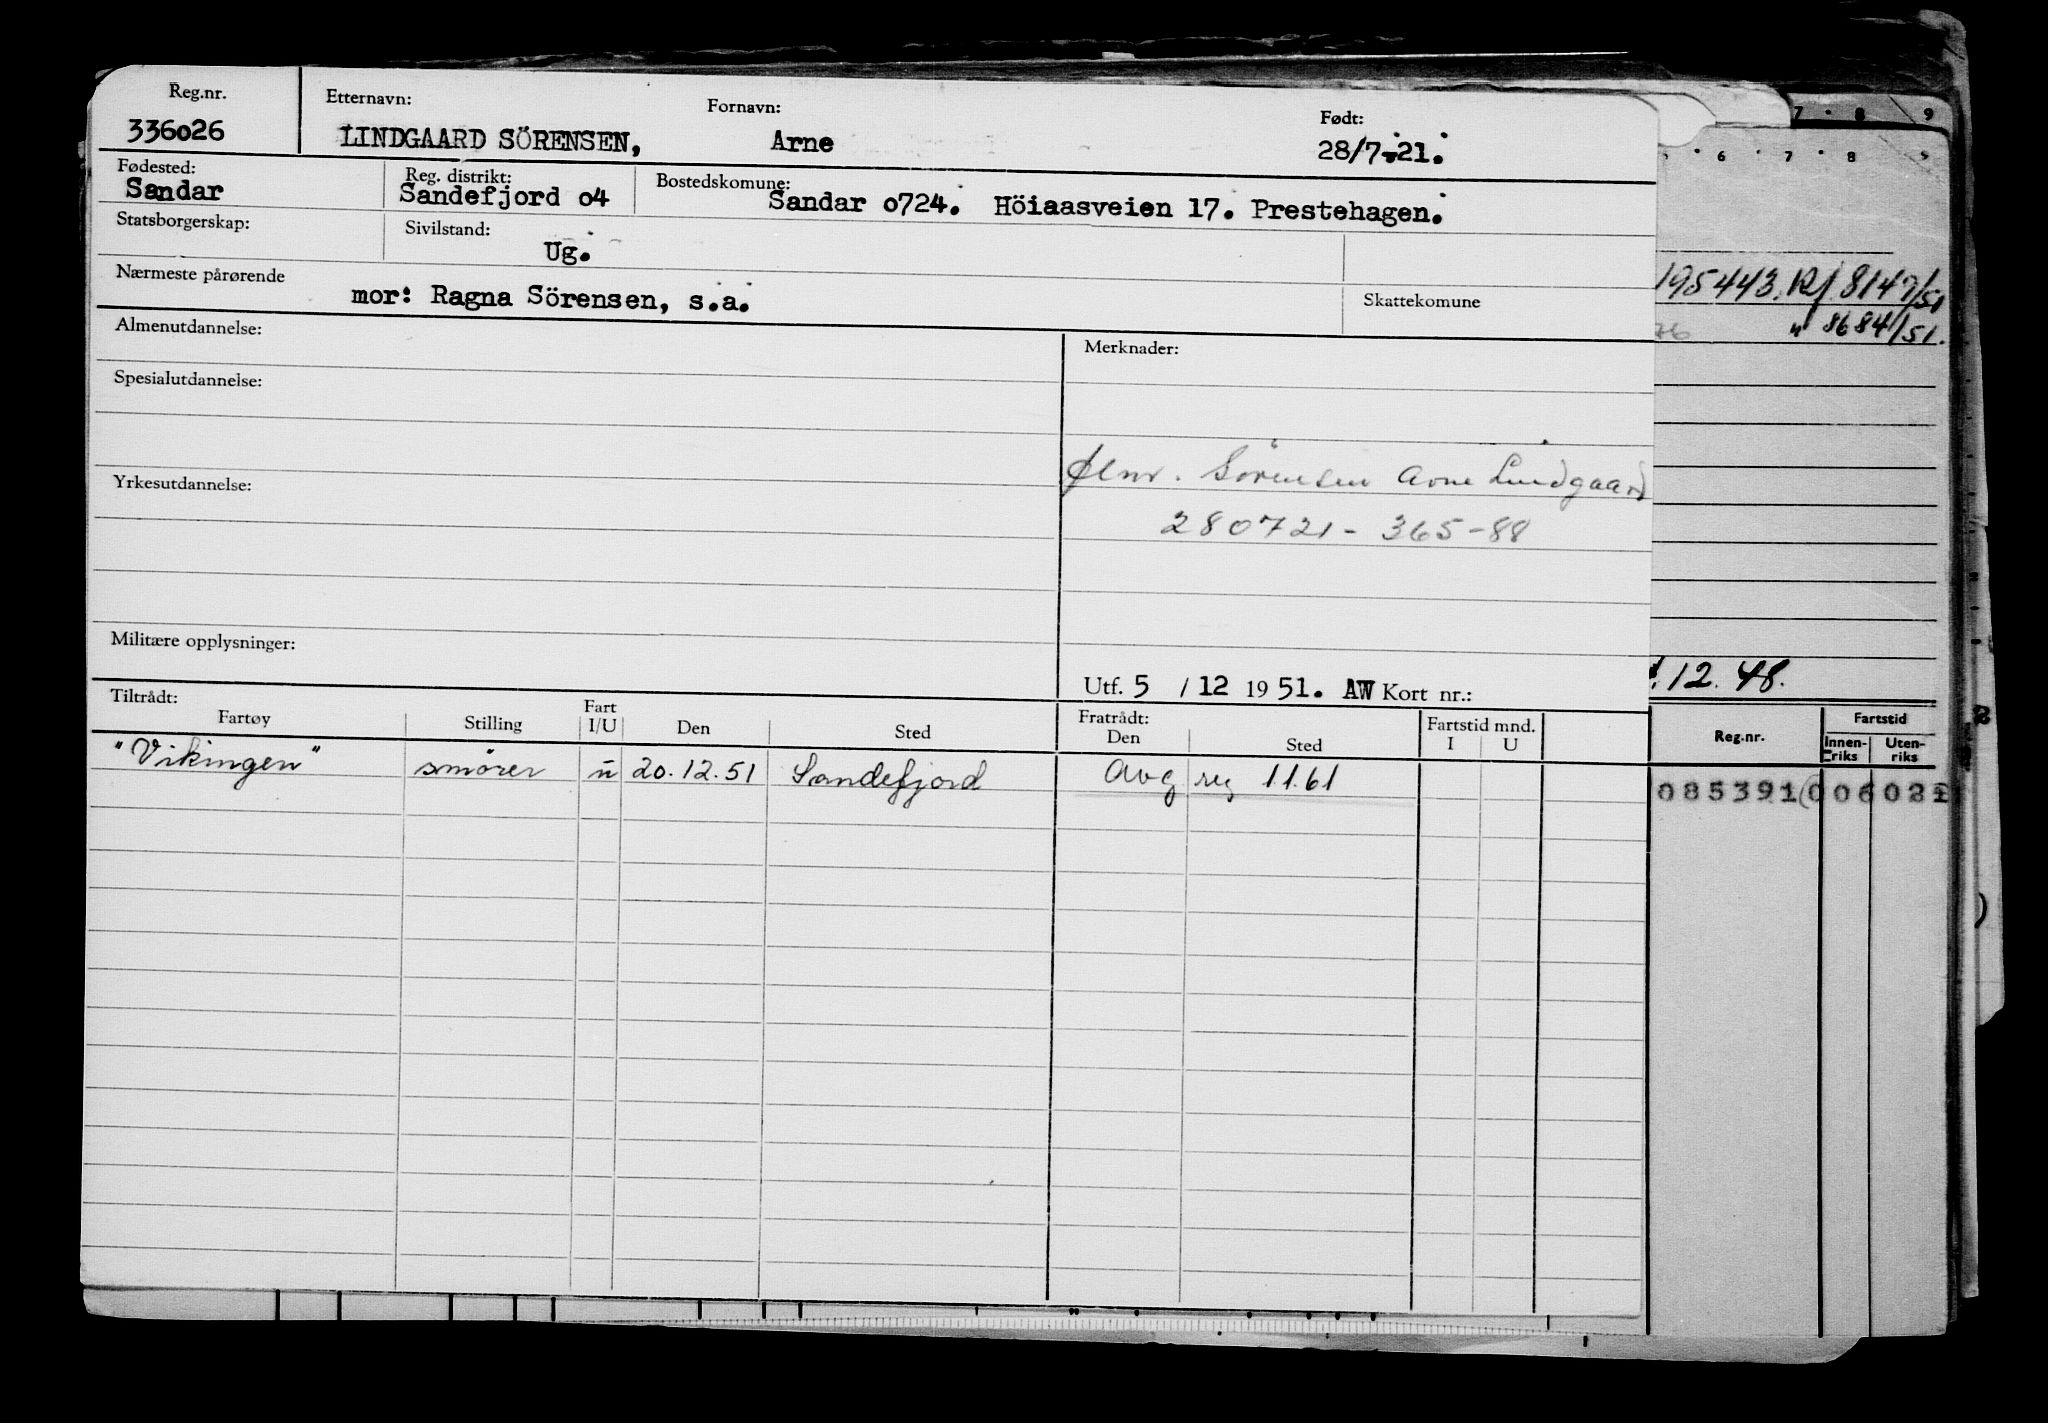 Reg.nr. Etternavn: Fornavn: Født:
336026 LINDGAARD SÖRENSEN, Arne 28/7-21.
Fødested: Reg. distrikt: Bostedskomune:
Sandar Sandefjord o4 Sandar o724. Höiaasveien 17. Prestehagen.
Statsborgerskap: Sivilstand:
Ug.
Nærmeste pårørende Skattekomune
mor: Ragna Sörensen, s.a.
Almenutdannelse: Merknader:
Spesialutdannelse:
Sörensen Arne Lindgaard
Yrkesutdannelse:
280721-365-88
Militære opplysninger:
Utf. 5 / 12 1951. AW Kort nr.:
Tiltrådt: Fratrådt: Fartstid mnd.
Fartøy Stilling Fart I/U Den Sted Den Sted I U
"Vikingen" smører u 20.12.51 Sandefjord Avg reg 1.1.61
7 8 9
6 7 8
195443. Rf 8147/51
" 8684/51.
12.48.
Reg.nr. Fartstid
Innen-riks Uten-riks
085391 006021